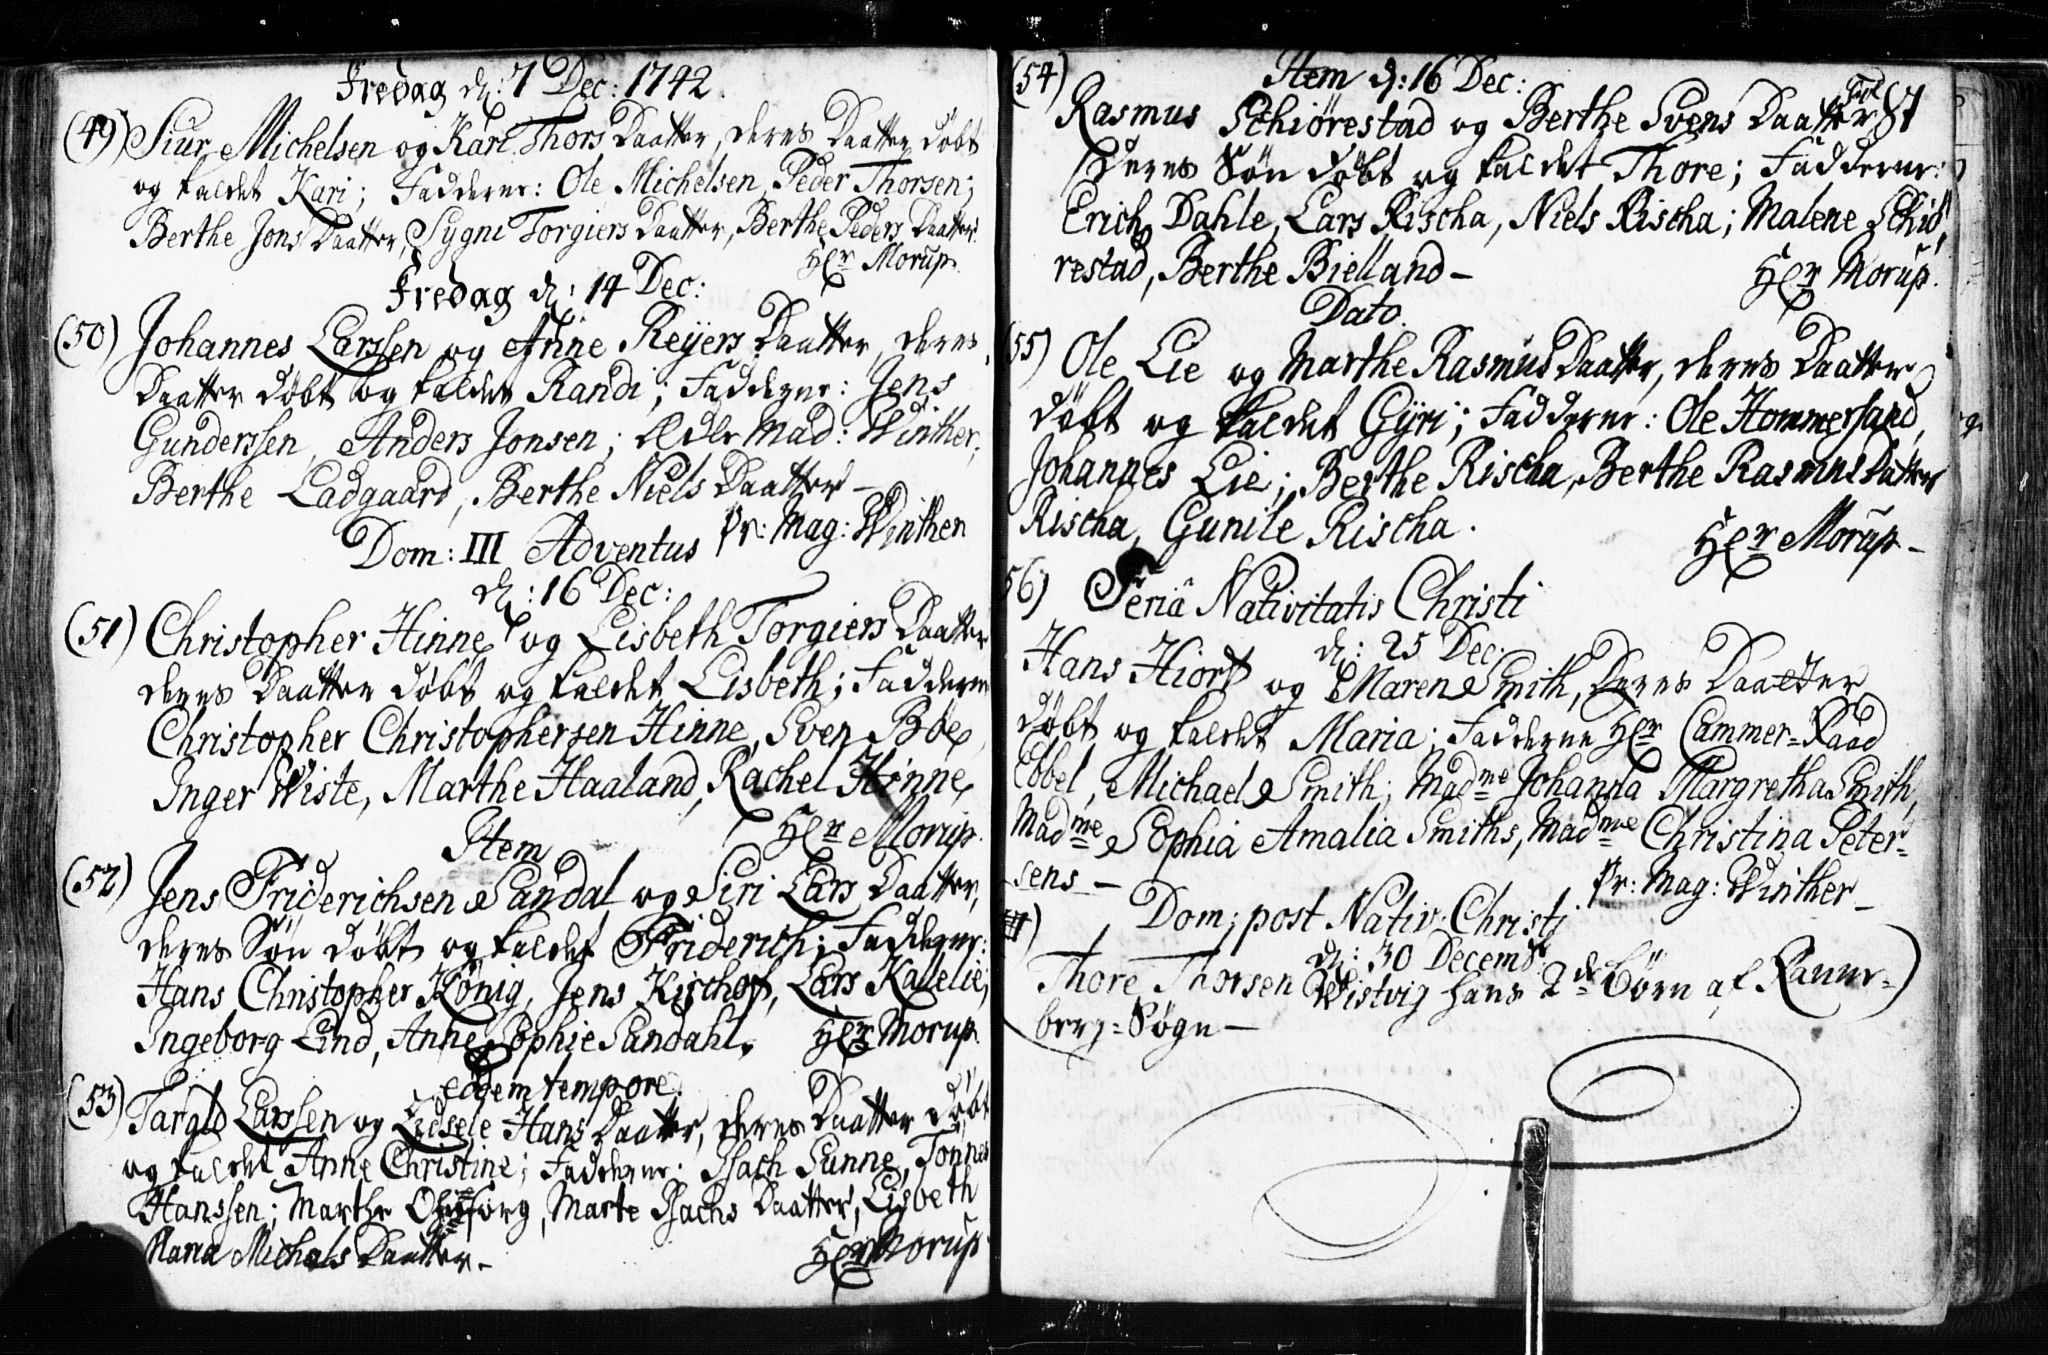 Fredag d: 7 Dec: 1742.
(49) Siur Michelsen og Kari Thors Daatter, deres Daatter døbt
og kaldet Kari; Fadderne: Ole Michelsen, Peder Thorsen;
Berthe Jons Daatter, Sygni Torgiers Daatter, Berthe Peders Daatter.
Her Morup.
Fredag d: 14 Dec:
(50) Johannes Larssen og Anne Reyers Daatter, deres
Daatter døbt og kaldet Randi; Fadderne: Jens
Gunderssen, Anders Jonsen; Ædle Mad: Winther,
Berthe Ladgaard, Berthe Niels Daatter –
Pr: Mag: Winther
Dom: III Adventus
d: 16 Dec:
(51) Christopher Hinne og Lisbeth Torgiers Daatter
deres Daatter døbt og kaldet Lisbeth; Fadderne
Christopher Christophersen Hinne, Sven Bøe,
Inger Wiste, Marthe Haaland, Rachel Hinne,
Her Morup.
Item
(52) Jens Friderichsen Sandal og Siri Lars Daatter,
deres Søn døbt og kaldet Friderich; Fadderne:
Hans Christopher König, Jens Kischof, Lars Kallelie;
Ingeborg Lind, Anne Sophie Sandahl.
Her Morup.
eodem tempore.
(53) Targld Larssen og Lidsele Hans Daatter, deres Daatter døbt
og kaldet Anne Christine; Fadderne: Isach Sunne, Tønnes
Hanssen; Marthe, Marte Isachs Daatter, Lisbeth
Maria Michals Daatter.
Her Morup
(54) Item d: 16 Dec:
87
Rasmus Schiørestad og Berthe Svens Daatter
Deres Søn døbt og kaldet Thore; Fadderne:
Erich Dahle, Lars Rischa, Niels Rischa; Malene Schiø,
restad, Berthe Bielland –
Her Morup.
Dato.
55) Ole Lie og Marthe Rasmus Daatter, deres Daatter
døbt og kaldet Gyri; Fadderne: Ole Hommersand,
Johannes Lie; Berthe Rischa, Berthe Rasmus Datter
Rischa, Gunile Rischa.
Her Morup –
56) Feriâ Nativitatis Christi
d: 25 Dec.
Hans Hiort og Maren Smith, Deres Daatter
døbt og kaldet Maria; Fadderne Her Cammer=Raad
Ebbel, Michael Smith; Madme Johanna Margretha Smith,
Madme Sophia Amalia Smiths, Madme Christina Peter=
sens –
Pr: Mag: Winther –
Dom; post Nativ: Christi
d: 30 Decemb
Thore Thorsen Wistvig hans 2de Børn af Ranne=
berg=Søgn –